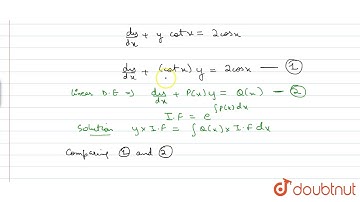 dy/dx + y cot x = 2cosx
dy/dx + (cot x) y = 2cosx — ①
Linear D.E ⇒ dy/dx + P(x) y = Q(x) — ②
I.F = e^∫P(x) dx
Solution y × I.F = ∫ Q(x) × I.F dx
Comparing ① and ②
doubtnut